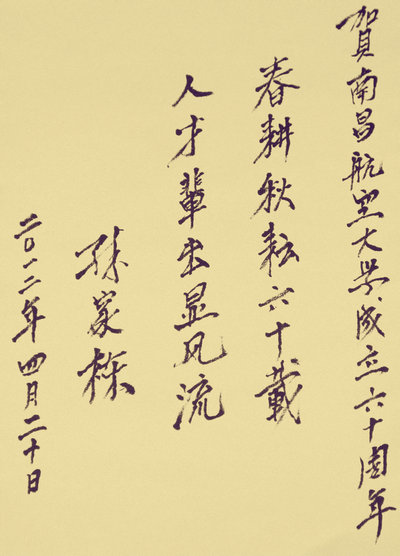 賀南昌航空大学成立六十周年
春耕秋耘六十載
人才輩出显风流
孫家栋
二〇一二年四月二十日